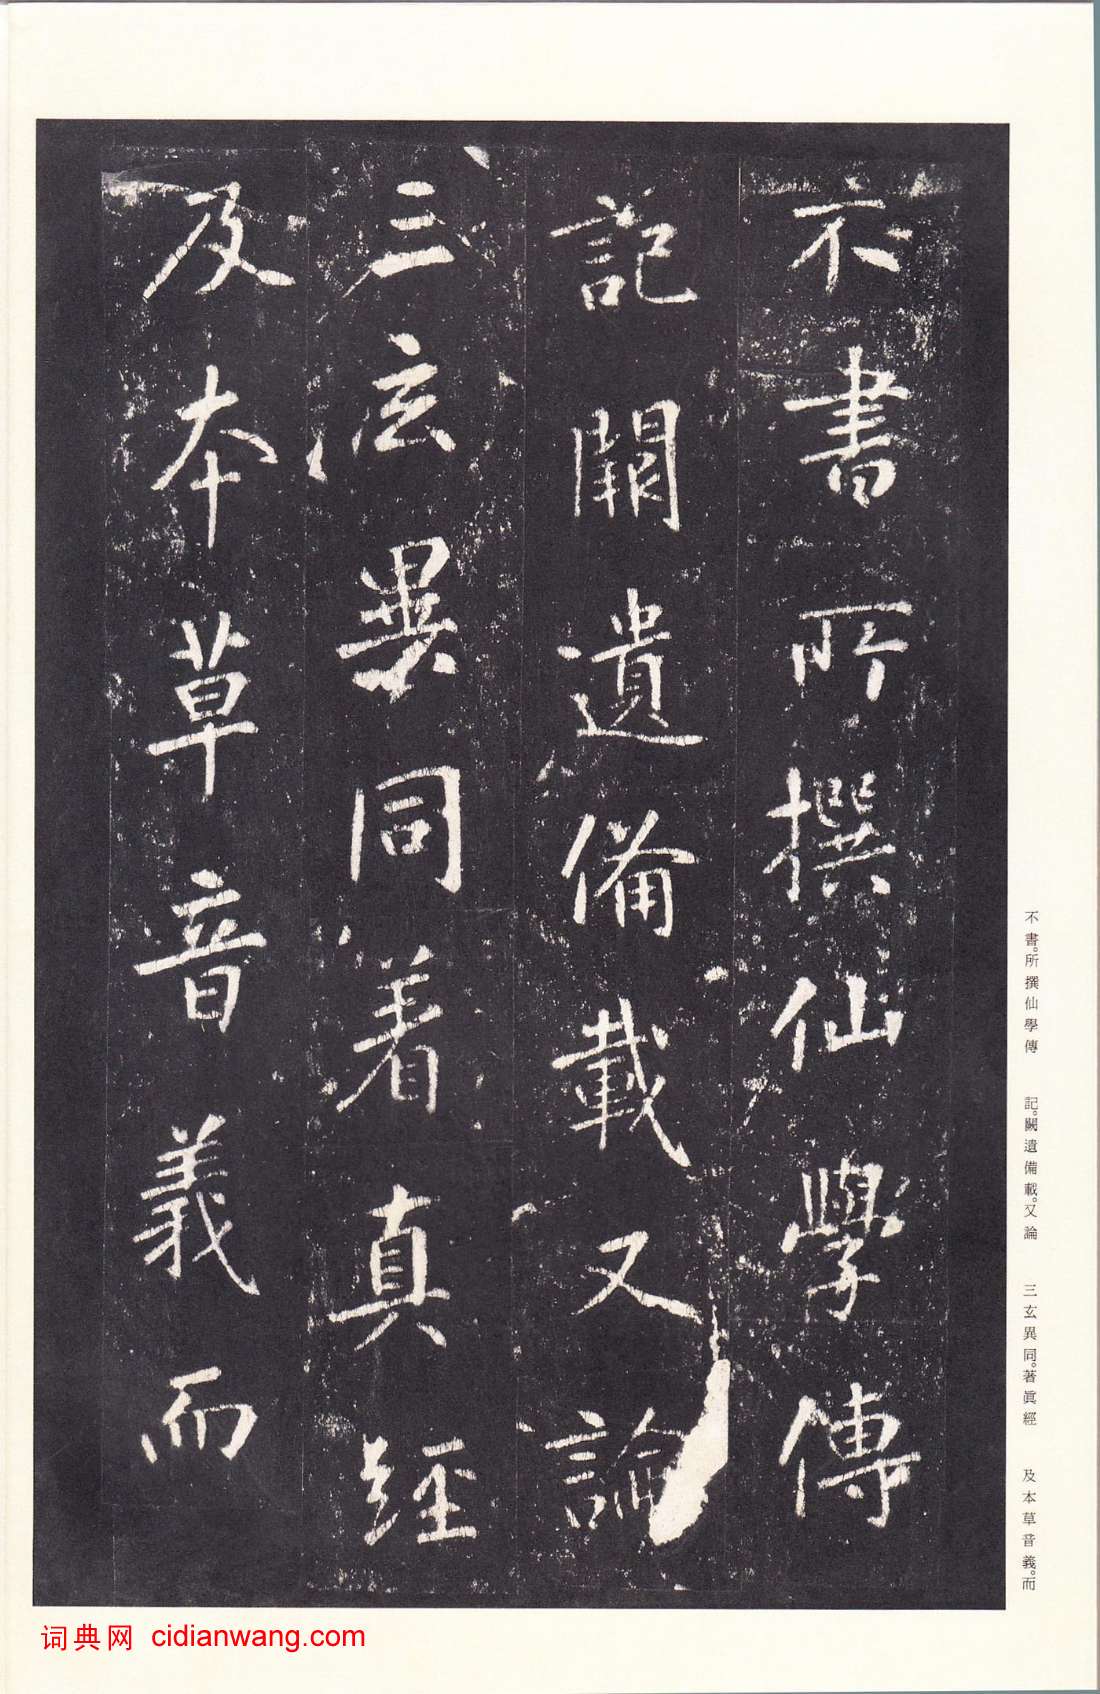 不書所撰仙學傳
記闕遺備載又論
三玄異同著真經
及本草音義而
不書。所撰仙學傳 記。闕遺備載。又論 三玄異同。著眞經 及本草音義。而
词典网 cidianwang.com